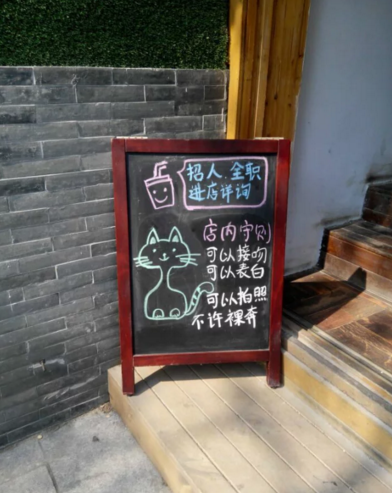 招人.全职
进店详询
店内守则
可以接吻
可以表白
可以拍照
不许裸奔